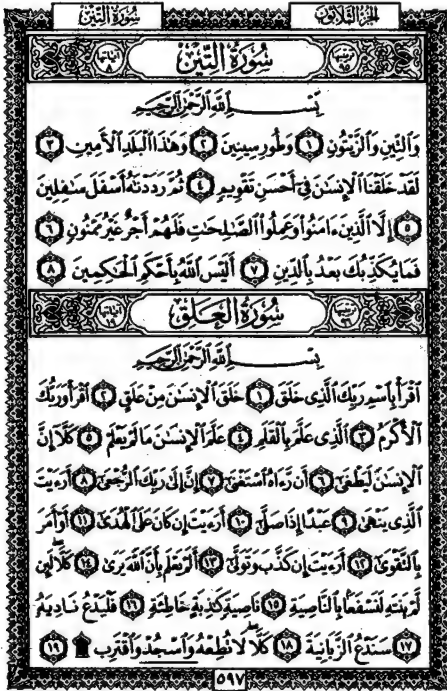 الجزء الثلاثون
سورة التين
ترتيبها ٩٥ سورة التين آياتها ٨
بِسْمِ اللَّهِ الرَّحْمَٰنِ الرَّحِيمِ
وَالتِّينِ وَالزَّيْتُونِ ١ وَطُورِ سِينِينَ ٢ وَهَٰذَا الْبَلَدِ الْأَمِينِ ٣
لَقَدْ خَلَقْنَا الْإِنسَٰنَ فِي أَحْسَنِ تَقْوِيمٍ ٤ ثُمَّ رَدَدْنَٰهُ أَسْفَلَ سَٰفِلِينَ
٥ إِلَّا الَّذِينَ ءَامَنُوا وَعَمِلُوا الصَّٰلِحَٰتِ فَلَهُمْ أَجْرٌ غَيْرُ مَمْنُونٍ ٦
فَمَا يُكَذِّبُكَ بَعْدُ بِالدِّينِ ٧ أَلَيْسَ اللَّهُ بِأَحْكَمِ الْحَٰكِمِينَ ٨
ترتيبها ٩٦ سورة العلق آياتها ١٩
بِسْمِ اللَّهِ الرَّحْمَٰنِ الرَّحِيمِ
اقْرَأْ بِاسْمِ رَبِّكَ الَّذِي خَلَقَ ١ خَلَقَ الْإِنسَٰنَ مِنْ عَلَقٍ ٢ اقْرَأْ وَرَبُّكَ
الْأَكْرَمُ ٣ الَّذِي عَلَّمَ بِالْقَلَمِ ٤ عَلَّمَ الْإِنسَٰنَ مَا لَمْ يَعْلَمْ ٥ كَلَّا إِنَّ
الْإِنسَٰنَ لَيَطْغَىٰ ٦ أَن رَّءَاهُ اسْتَغْنَىٰ ٧ إِنَّ إِلَىٰ رَبِّكَ الرُّجْعَىٰ ٨ أَرَءَيْتَ
الَّذِي يَنْهَىٰ ٩ عَبْدًا إِذَا صَلَّىٰ ١٠ أَرَءَيْتَ إِن كَانَ عَلَى الْهُدَىٰ ١١ أَوْ أَمَرَ
بِالتَّقْوَىٰ ١٢ أَرَءَيْتَ إِن كَذَّبَ وَتَوَلَّىٰ ١٣ أَلَمْ يَعْلَم بِأَنَّ اللَّهَ يَرَىٰ ١٤ كَلَّا لَئِن
لَّمْ يَنتَهِ لَنَسْفَعًا بِالنَّاصِيَةِ ١٥ نَاصِيَةٍ كَٰذِبَةٍ خَاطِئَةٍ ١٦ فَلْيَدْعُ نَادِيَهُ
١٧ سَنَدْعُ الزَّبَانِيَةَ ١٨ كَلَّا لَا تُطِعْهُ وَاسْجُدْ وَاقْتَرِب ۩ ١٩
٥٩٧